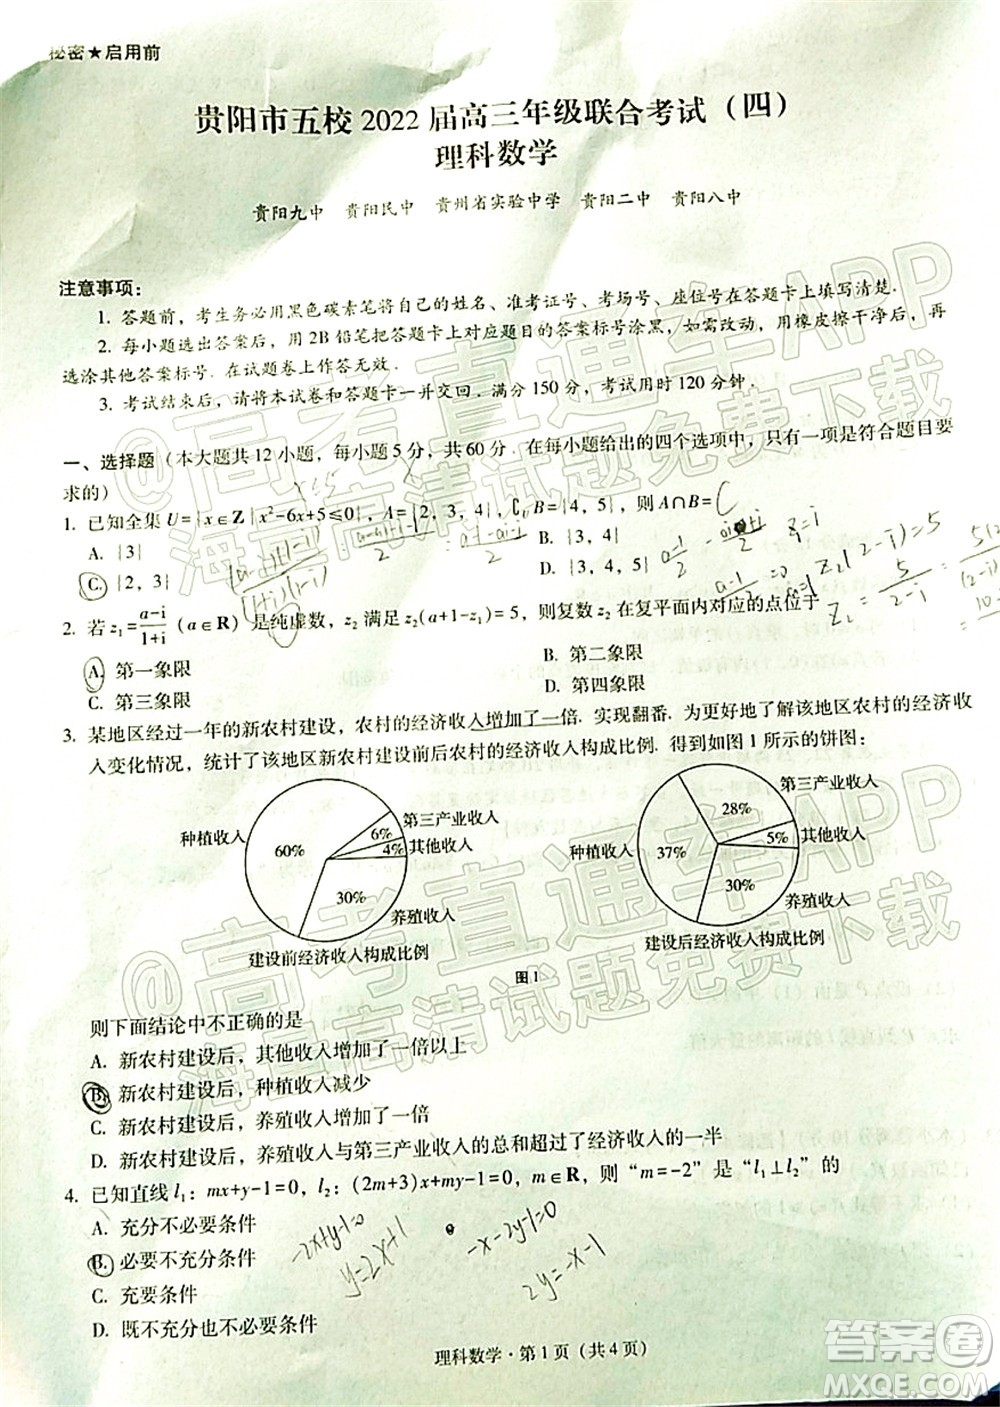 秘密★启用前
贵阳市五校2022届高三年级联合考试（四）
理科数学
贵阳九中 贵阳民中 贵州省实验中学 贵阳二中 贵阳八中
注意事项：
1. 答题前，考生务必用黑色碳素笔将自己的姓名、准考证号、考场号、座位号在答题卡上填写清楚.
2. 每小题选出答案后，用2B铅笔把答题卡上对应题目的答案标号涂黑，如需改动，用橡皮擦干净后，再
选涂其他答案标号. 在试题卷上作答无效.
3. 考试结束后，请将本试卷和答题卡一并交回. 满分150分，考试用时120分钟.
一、选择题（本大题共12小题，每小题5分，共60分. 在每小题给出的四个选项中，只有一项是符合题目要
求的）
1. 已知全集U={x∈Z|x²-6x+5≤0}，A={2，3，4}，∁UB={4，5}，则A∩B= C
A. {3}
B. {3，4}
C. {2，3}
D. {3，4，5}
2. 若z₁=(a-i)/(1+i)（a∈R）是纯虚数，z₂满足z₂(a+1-z₁)=5，则复数z₂在复平面内对应的点位于
A. 第一象限
B. 第二象限
C. 第三象限
D. 第四象限
3. 某地区经过一年的新农村建设，农村的经济收入增加了一倍. 实现翻番. 为更好地了解该地区农村的经济收
入变化情况，统计了该地区新农村建设前后农村的经济收入构成比例. 得到如图1所示的饼图：
种植收入 60%
第三产业收入 6%
其他收入 4%
养殖收入 30%
建设前经济收入构成比例
第三产业收入 28%
其他收入 5%
种植收入 37%
养殖收入 30%
建设后经济收入构成比例
图1
则下面结论中不正确的是
A. 新农村建设后，其他收入增加了一倍以上
B. 新农村建设后，种植收入减少
C. 新农村建设后，养殖收入增加了一倍
D. 新农村建设后，养殖收入与第三产业收入的总和超过了经济收入的一半
4. 已知直线l₁：mx+y-1=0，l₂：(2m+3)x+my-1=0，m∈R，则“m=-2”是“l₁⊥l₂”的
A. 充分不必要条件
B. 必要不充分条件
C. 充要条件
D. 既不充分也不必要条件
-2x+y-1=0
y=2x+1
-x-2y-1=0
2y=-x-1
理科数学·第1页（共4页）
@高考直通车APP
海量高清试题免费下载
@高考直通车APP
海量高清试题免费下载
答案圈
MXQE.COM